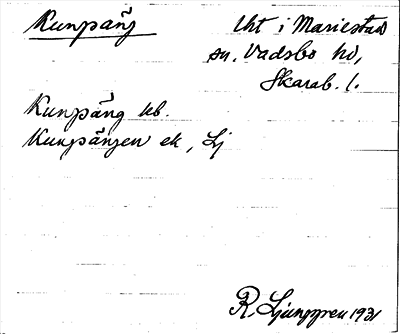 Kunpäng
Uht i Mariestad
sn. Vadsbo hd,
Skarab. l.
Kunpäng ub.
Kunpängen ek, Lj
R. Ljunggren 1931